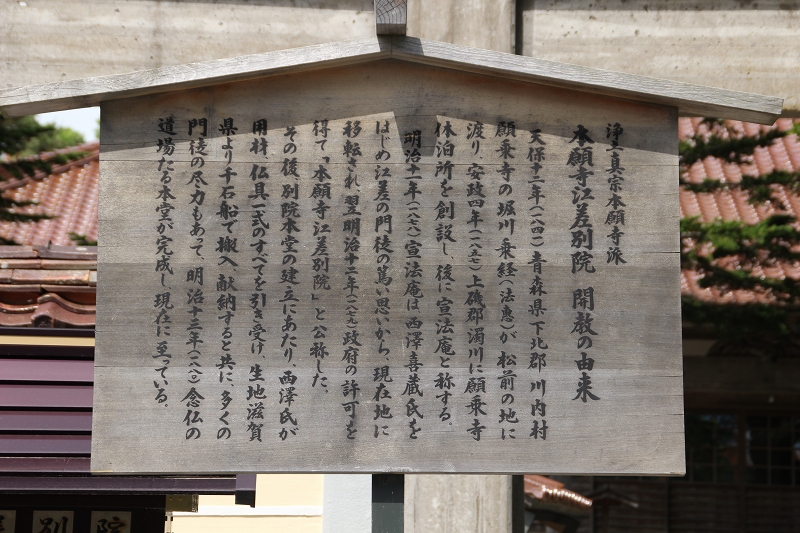 浄土真宗本願寺派
本願寺江差別院 開教の由来
天保十二年(一八四一)青森県下北郡川内村
願乗寺の堀川乗経(法恵)が松前の地に
渡り、安政四年(一八五七)上磯郡濁川に願乗寺
休泊所を創設し、後に宣法庵と称する。
明治十一年(一八七八)宣法庵は西澤喜蔵氏を
はじめ江差の門徒の篤い思いから、現在地に
移転され翌明治十二年(一八七九)政府の許可を
得て「本願寺江差別院」と公称した。
その後、別院本堂の建立にあたり、西澤氏が
用材、仏具一式のすべてを引き受け、生地滋賀
県より千石船で搬入、献納すると共に、多くの
門徒の尽力もあって、明治十三年(一八八〇)念仏の
道場たる本堂が完成し現在に至っている。
別院